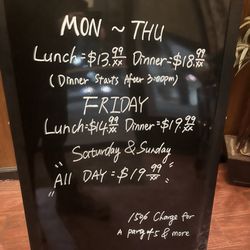 MON ~ THU
Lunch = $13.99/xx Dinner = $18.99/xx
(Dinner Starts After 3:00pm)
FRIDAY
Lunch = $14.99/xx Dinner = $19.99/xx
Saturday & Sunday
"All DAY = $19.99/xx"
15% Charge for
A party of 5 & more